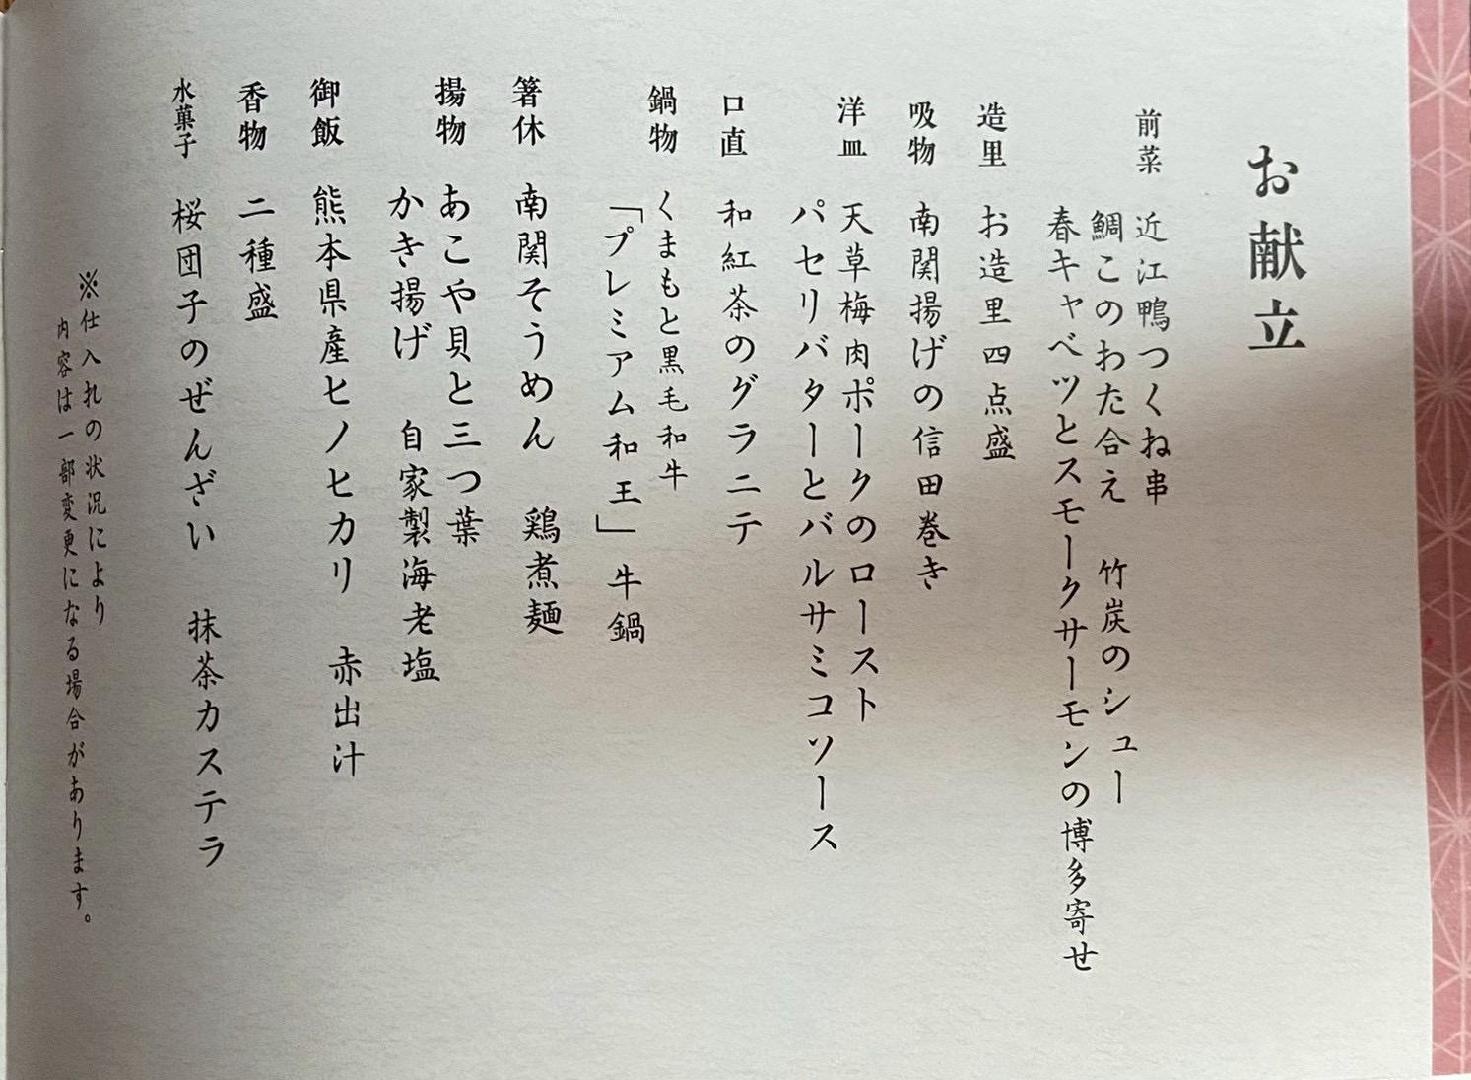 お献立
前菜 近江鴨つくね串
鯛このわた合え 竹炭のシュー
春キャベツとスモークサーモンの博多寄せ
造里 お造里四点盛
吸物 南関揚げの信田巻き
洋皿 天草梅肉ポークのロースト
パセリバターとバルサミコソース
口直 和紅茶のグラニテ
鍋物 くまもと黒毛和牛
「プレミアム和王」牛鍋
箸休 南関そうめん 鶏煮麺
揚物 あこや貝と三つ葉
かき揚げ 自家製海老塩
御飯 熊本県産ヒノヒカリ 赤出汁
香物 二種盛
水菓子 桜団子のぜんざい 抹茶カステラ
※仕入れの状況により
内容は一部変更になる場合があります。